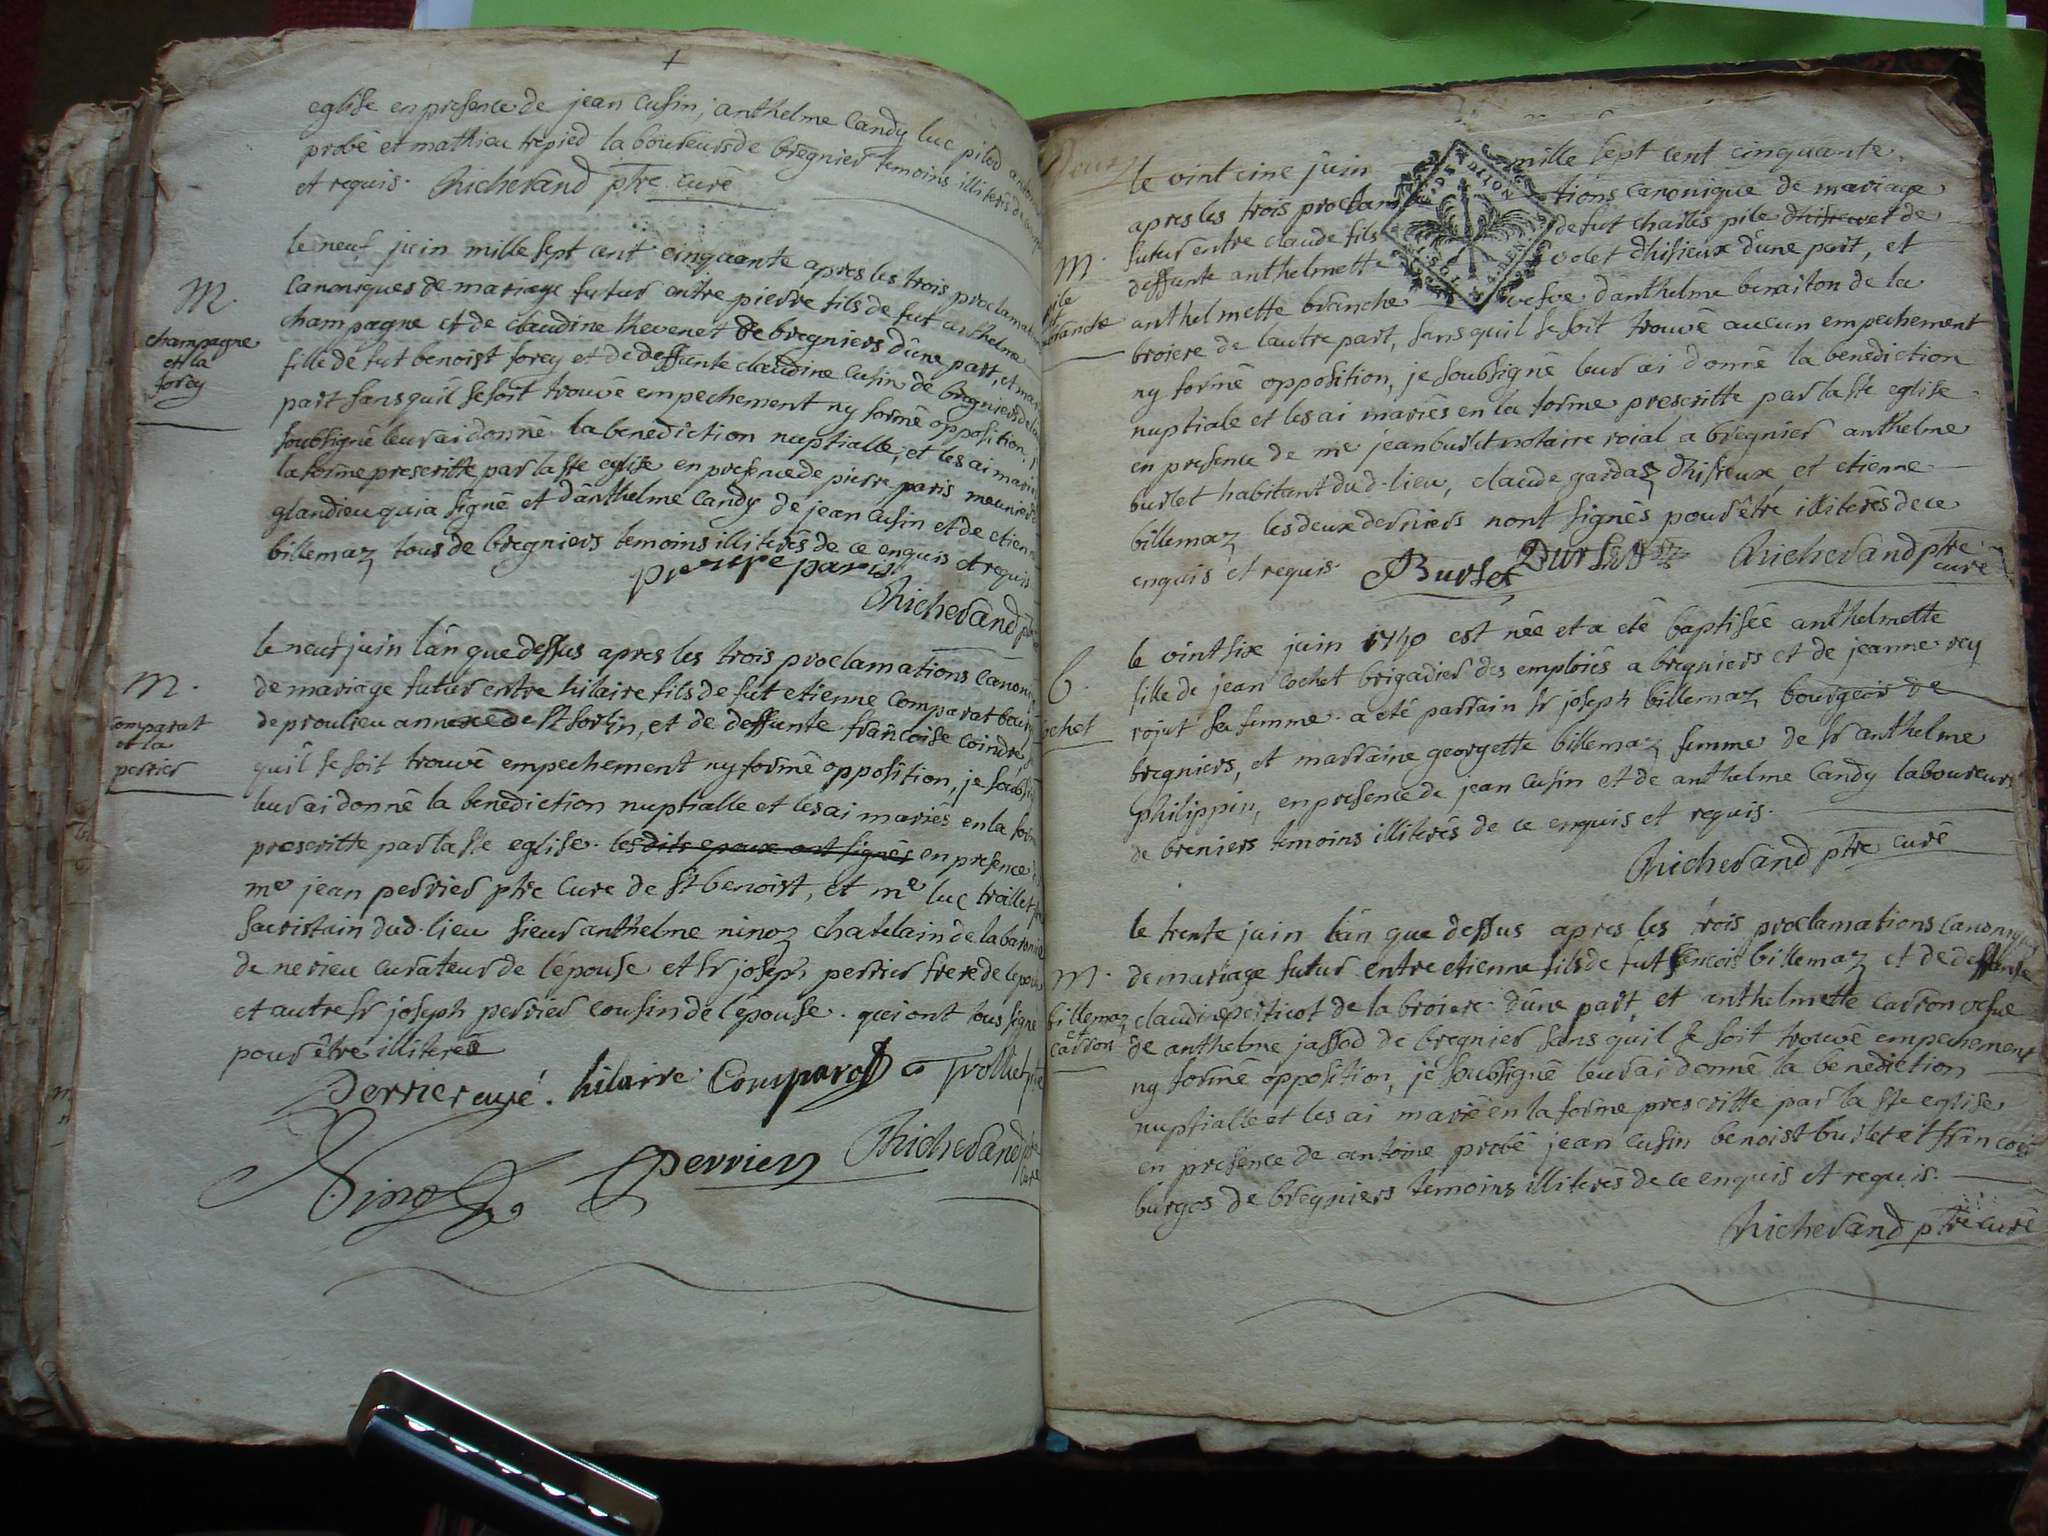 eglise en presence de jean cusin, anthelme Candy luc pilod antoine
probé et mathieu trepied laboureurs de bregnier temoins illiterés de ce enquis
et requis. Richerand ptre curé
M.
champagne
et la
forey
le neuf juin mille sept cent cinquante apres les trois proclamations
Canoniques de mariage futur entre pierre fils de fut anthelme
champagne et de Claudine thevenet de bregniers d'une part, et
fille de fut benoist forey et de deffunte claudine cusin de bregniers de
part sans quil se soit trouvé empechement ny formé opposition,
soubsigné leur ai donné la benediction nuptialle, et les ai mariés
la forme prescritte par la ste eglise en presence de pierre paris meunier
glandieu qui a signé et d'anthelme Candy de jean cusin et de etienne
billemaz tous de bregniers temoins illiterés de ce enquis et requis
pierre paris
Richerand ptre
M.
Comparat
et la
perrier
le neuf juin l'an que dessus apres les trois proclamations canoniques
de mariage futur entre hilaire fils de fut etienne Comparat
de proulieu annexe de st sorlin, et de deffunte françoise coindre,
quil se soit trouvé empechement ny formé opposition, je soubsigné
leur ai donné la benediction nuptialle et les ai mariés en la forme
prescritte par la ste eglise. lesdits epoux ont signés en presence de
me jean perrier ptre Curé de st benoist, et me luc trollet ptre
sacristain dud. lieu sieur anthelme ninoz chatelain de la baronie
de nerieu curateur de l'epouse et sr joseph perrier frere de l'epouse
et autre sr joseph perrier cousin de l'epouse. qui ont tous signé
pour être illiterée
Perrier curé. hilaire Comparat Trollet ptre
Ninoz Perrier Richerand ptre
curé
M.
pile
et
branche
le vint cinc juin mille sept cent cinquante
apres les trois proclamations canonique de mariage
futur entre claude fils de fut charles pile dhisieux et de
deffunte anthelmette volet dhisieux d'une part, et
anthelmette branche vefve d'anthelme benaiton de la
broiere de lautre part, sans quil se soit trouvé aucun empechement
ny formé opposition, je soubsigné leur ai donné la benediction
nuptiale et les ai mariés en la forme prescritte par la ste eglise
en presence de me jean burlet notaire roial a bregnier anthelme
burlet habitant dud. lieu, claude gardaz dhisieux, et etienne
billemaz les deux derniers nont signés pour être illiterés de ce
enquis et requis. Burlet Burlet Richerand ptre
curé
B.
cochet
le vint six juin 1750 est née et a eté baptisée anthelmette
fille de jean cochet brigadier des emploiés a bregniers et de jeanne rey
rojut sa femme. a eté parrain sr joseph billemaz bourgeois de
bregniers, et marraine georgette billemaz femme de sr anthelme
philippin, en presence de jean cusin et de anthelme Candy laboureurs
de breniers temoins illiterés de ce enquis et requis.
Richerand ptre curé
M.
billemaz
et
carron
le trente juin l'an que dessus apres les trois proclamations canoniques
de mariage futur entre etienne fils de fut francois billemaz et de deffunte
claudine perticot de la broiere d'une part, et anthelmette carron vefve
de anthelme jassod de bregnier sans quil se soit trouvé empechement
ny formé opposition, je soubsigné leur ai donné la benediction
nuptialle et les ai marié en la forme prescritte par la ste eglise
en presence de antoine probé jean cusin benoist burlet et francois
burgos de bregniers temoins illiterés de ce enquis et requis.
Richerand ptre curé